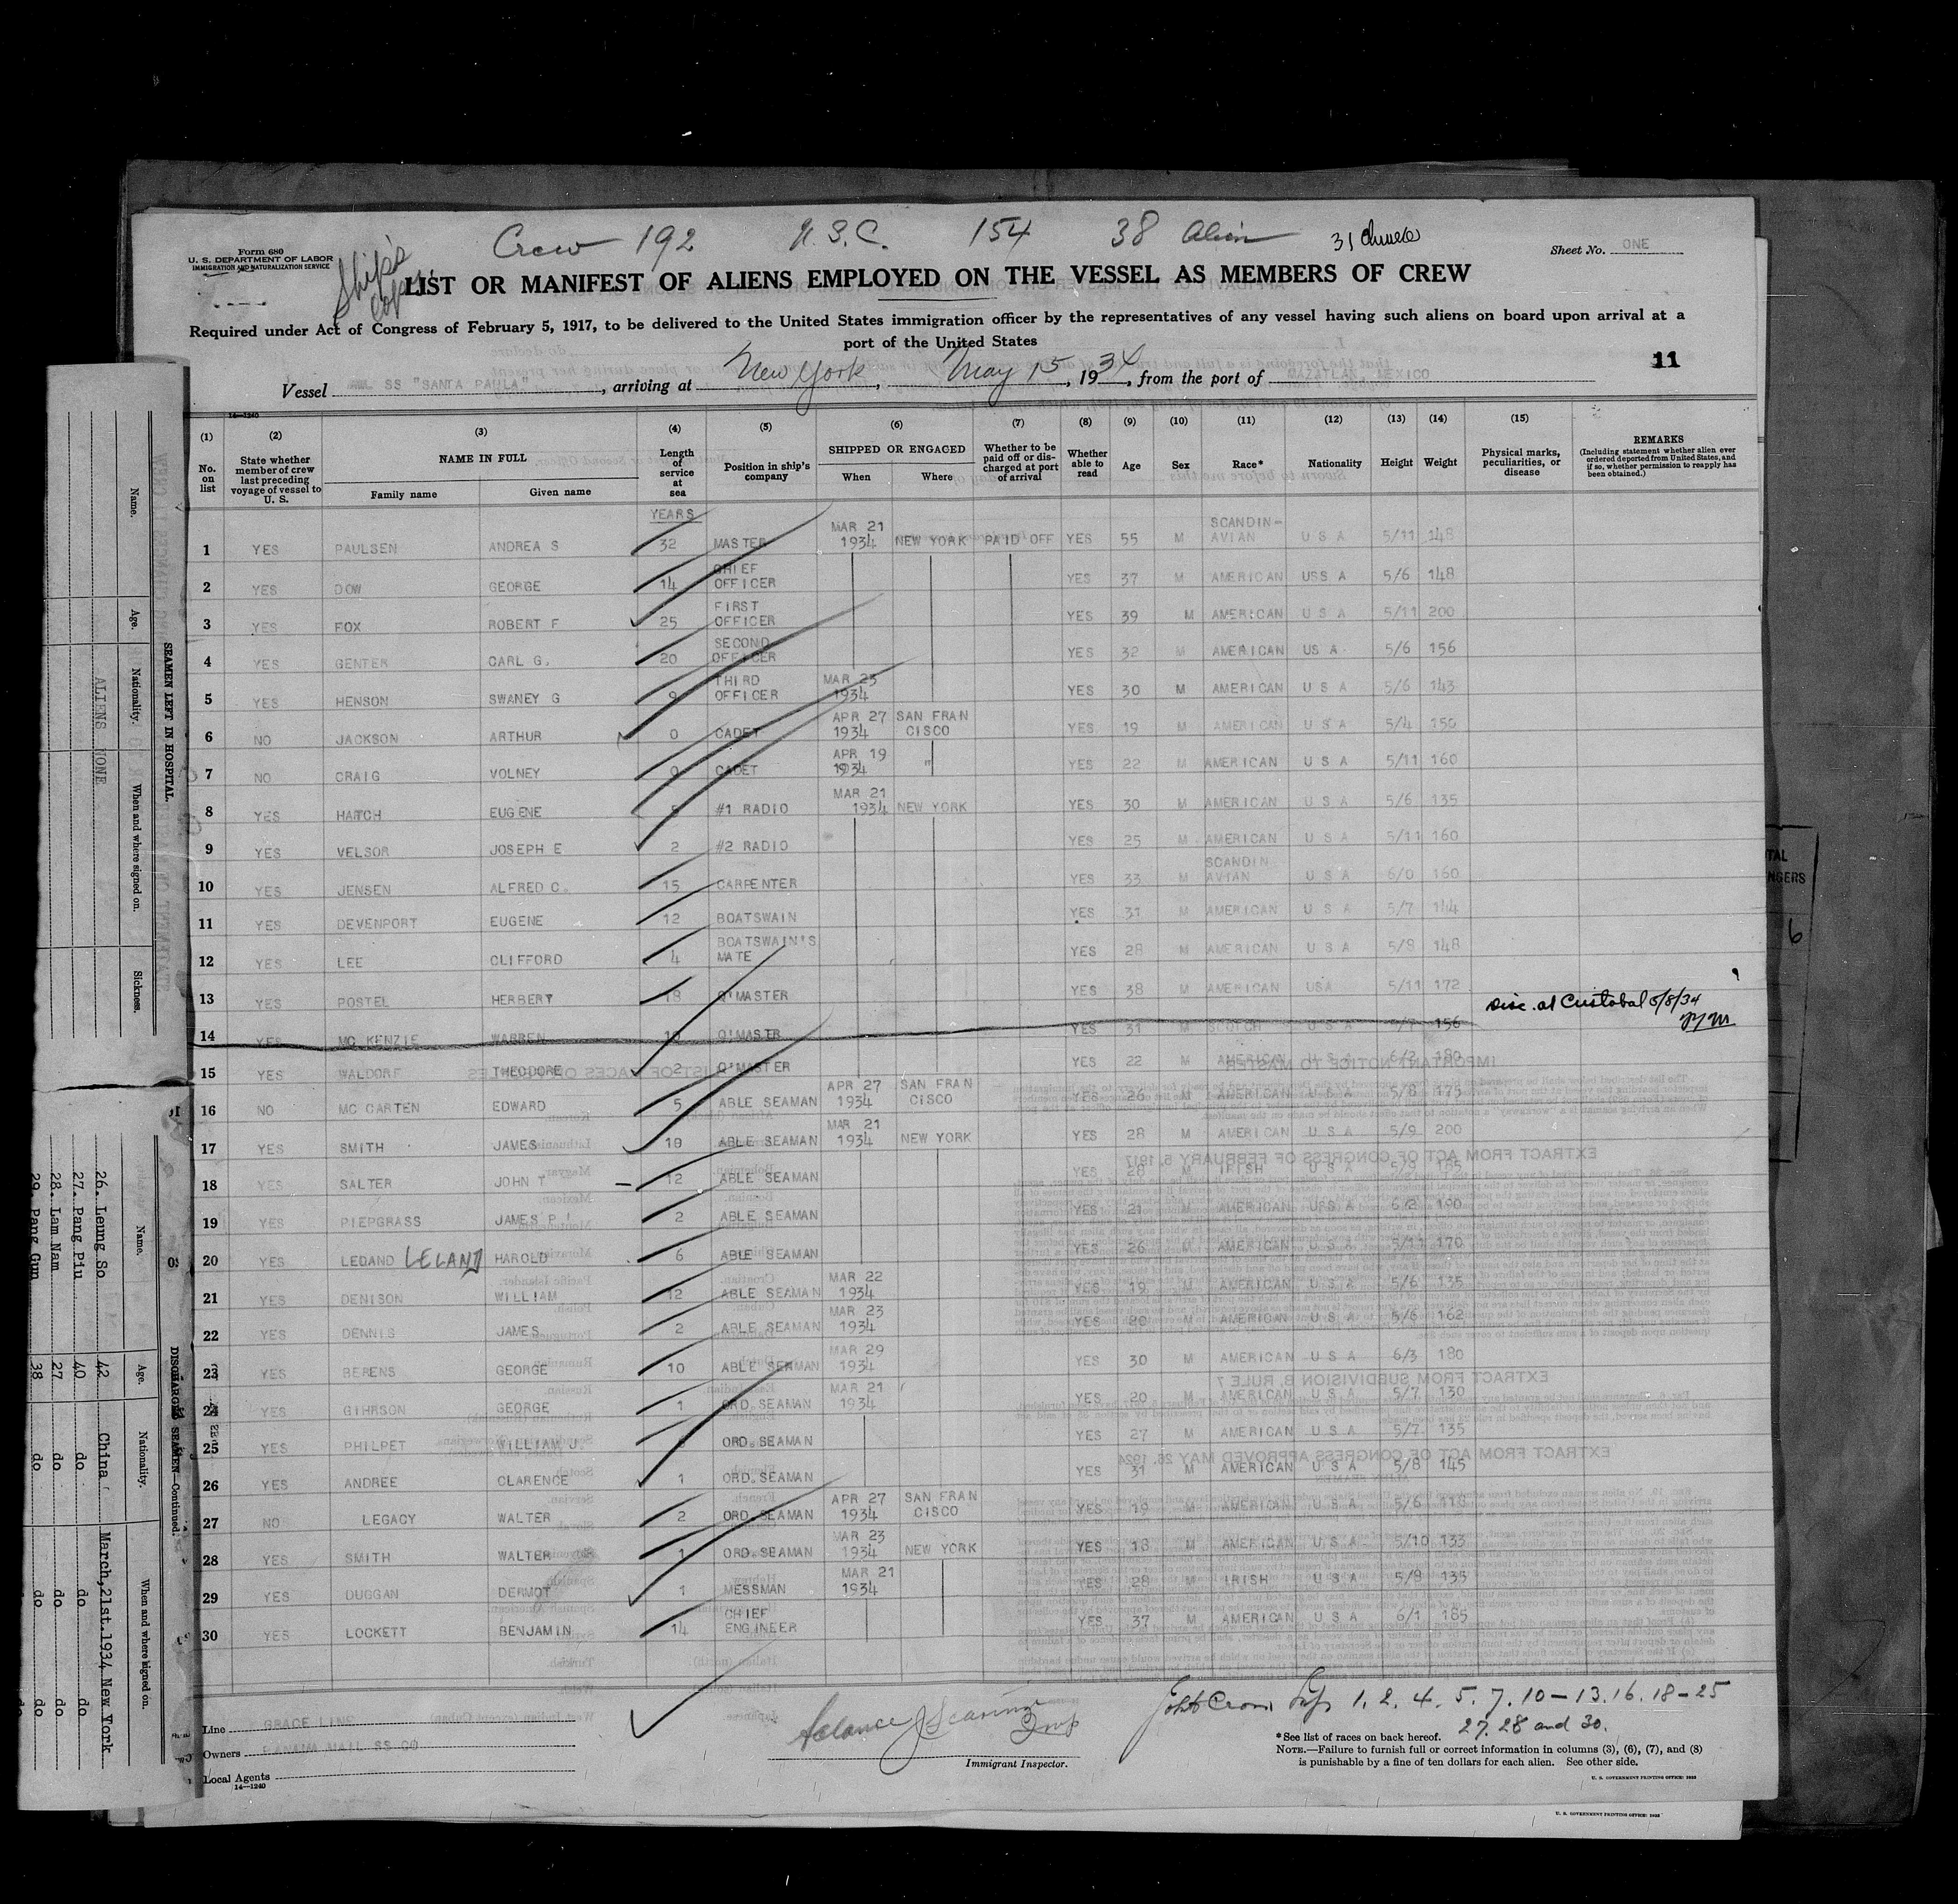 Crew 192 U.S.C. 154 38 Alien
Form 680
U. S. DEPARTMENT OF LABOR
IMMIGRATION AND NATURALIZATION SERVICE
Ship's copy
Sheet No. ONE
LIST OR MANIFEST OF ALIENS EMPLOYED ON THE VESSEL AS MEMBERS OF CREW
Required under Act of Congress of February 5, 1917, to be delivered to the United States immigration officer by the representatives of any vessel having such aliens on board upon arrival at a
port of the United States
11
Vessel SS "SANTA PAULA", arriving at New York, May 15, 1934, from the port of MAZATLAN, MEXICO
14—1240
(1) (2) (3) (4) (5) (6) (7) (8) (9) (10) (11) (12) (13) (14) (15)
No. on list
State whether member of crew last preceding voyage of vessel to U. S.
NAME IN FULL
Family name
Given name
Length of service at sea
Position in ship's company
SHIPPED OR ENGAGED
When
Where
Whether to be paid off or discharged at port of arrival
Whether able to read
Age
Sex
Race*
Nationality
Height
Weight
Physical marks, peculiarities, or disease
REMARKS
(Including statement whether alien ever ordered deported from United States, and if so, whether permission to reapply has been obtained.)
YEARS
1 YES PAULSEN ANDREA S 32 MASTER MAR 21 1934 NEW YORK PAID OFF YES 55 M SCANDIN-AVIAN U S A 5/11 148
2 YES DOW GEORGE 14 CHIEF OFFICER YES 37 M AMERICAN USS A 5/6 148
3 YES FOX ROBERT F 25 FIRST OFFICER YES 39 M AMERICAN U S A 5/11 200
4 YES GENTER CARL G. 20 SECOND OFFICER YES 32 M AMERICAN US A 5/6 156
5 YES HENSON SWANEY G 9 THIRD OFFICER MAR 23 1934 YES 30 M AMERICAN U S A 5/6 143
6 NO JACKSON ARTHUR 0 CADET APR 27 1934 SAN FRAN CISCO YES 19 M AMERICAN U S A 5/4 150
7 NO CRAIG VOLNEY 0 CADET APR 19 1934 " YES 22 M AMERICAN U S A 5/11 160
8 YES HATCH EUGENE 5 #1 RADIO MAR 21 1934 NEW YORK YES 30 M AMERICAN U S A 5/6 135
9 YES VELSOR JOSEPH E 2 #2 RADIO YES 25 M AMERICAN U S A 5/11 160
10 YES JENSEN ALFRED C. 15 CARPENTER YES 33 M SCANDIN AVIAN U S A 6/0 160
11 YES DEVENPORT EUGENE 12 BOATSWAIN YES 31 M AMERICAN U S A 5/7 144
12 YES LEE CLIFFORD 4 BOATSWAIN'S MATE YES 28 M AMERICAN U S A 5/8 148
13 YES POSTEL HERBERT 18 Q'MASTER YES 38 M AMERICAN USA 5/11 172
14 YES MC KENZIE WARREN Q'MASTR YES 31 M SCOTCH U S A 5/7 156 Disc. at Cristobal 5/8/34
15 YES WALDORF THEODORE 2 Q'MASTER YES 22 M AMERICAN U S A 6/2 180
16 NO MC CARTEN EDWARD 5 ABLE SEAMAN APR 27 1934 SAN FRAN CISCO YES 26 M AMERICAN U S A 5/8 175
17 YES SMITH JAMES 10 ABLE SEAMAN MAR 21 1934 NEW YORK YES 28 M AMERICAN U S A 5/9 200
18 YES SALTER JOHN T 12 ABLE SEAMAN YES 28 M IRISH U S A 5/9 185
19 YES PIEPGRASS JAMES P 2 ABLE SEAMAN YES 21 M AMERICAN U S A 6/2 190
20 YES LEDAND LELAND HAROLD 6 ABLE SEAMAN YES 26 M AMERICAN U S A 5/11 170
21 YES DENISON WILLIAM 12 ABLE SEAMAN MAR 22 1934 YES 19 M AMERICAN U S A 5/6 135
22 YES DENNIS JAMES 2 ABLE SEAMAN MAR 23 1934 YES 20 M AMERICAN U S A 5/6 162
23 YES BERENS GEORGE 10 ABLE SEAMAN MAR 29 1934 YES 30 M AMERICAN U S A 6/3 180
24 YES GIHRSON GEORGE 1 ORD.SEAMAN MAR 21 1934 YES 20 M AMERICAN U S A 5/7 130
25 YES PHILPET WILLIAM J. ORD.SEAMAN YES 27 M AMERICAN U S A 5/7 135
26 YES ANDREE CLARENCE 1 ORD.SEAMAN YES 31 M AMERICAN U S A 5/8 145
27 NO LEGACY WALTER 2 ORD.SEAMAN APR 27 1934 SAN FRAN CISCO YES 19 M AMERICAN U S A 5/6 118
28 YES SMITH WALTER 1 ORD.SEAMAN MAR 23 1934 NEW YORK YES 18 M AMERICAN U S A 5/10 133
29 YES DUGGAN DERMOT 1 MESSMAN MAR 21 1934 YES 28 M IRISH U S A 5/8 135
30 YES LOCKETT BENJAMIN 14 CHIEF ENGINEER YES 37 M AMERICAN U S A 6/1 185
1. 2. 4. 5. 7. 10-13. 16. 18-25
27. 28 and 30.
Line GRACE LINE
Owners PANAMA MAIL SS CO
Local Agents
14—1240
Immigrant Inspector.
*See list of races on back hereof.
NOTE.—Failure to furnish full or correct information in columns (3), (6), (7), and (8)
is punishable by a fine of ten dollars for each alien. See other side.
U. S. GOVERNMENT PRINTING OFFICE: 1932
U. S. GOVERNMENT PRINTING OFFICE: 1932
SEAMEN LEFT IN HOSPITAL.
Name. Age. Nationality. When and where signed on. Sickness.
ALIENS NONE
DISCHARGED SEAMEN—Continued.
Name. Age. Nationality. When and where signed on.
26. Leung So 42 China March,21st.1934 New York
27. Pang Piu 40 do do
28. Lam Nam 27 do do
29. Pang Gun 38 do do